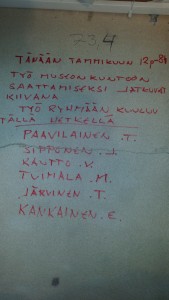 23.4
TÄNÄÄN TAMMIKUUN 12P-84
TYÖ MUSEON KUNTOON
SAATTAMISEKSI JATKUVAT
KIIVANA
TYÖ RYHMÄÄN KUULUU
TÄLLÄ HETKELLÄ
PAAVILAINEN .T.
SIPPONEN .J.
KAUTTO .V.
TUIMALA .M.
JÄRVINEN .T.
KANKAINEN .E.